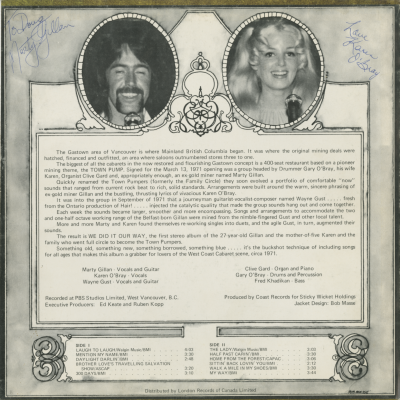 To Doug
Marty Gillan
Love
Karen
O'Bray
The Gastown area of Vancouver is where Mainland British Columbia began. It was where the original mining deals were
hatched, financed and outfitted, an area where saloons outnumbered stores three to one.
The biggest of all the cabarets in the now restored and flourishing Gastown concept is a 400 seat restaurant based on a pioneer
mining theme, the TOWN PUMP. Signed for the March 13, 1971 opening was a group headed by Drummer Gary O'Bray, his wife
Karen, Organist Clive Gard and, appropriately enough, an ex gold miner named Marty Gillan.
Quickly renamed the Town Pumpers (formerly the Family Circle) they soon evolved a portfolio of comfortable "now"
sounds that ranged from current rock beat to rich, solid standards. Arrangements were built around the warm, sincere phrasing of
ex-gold miner Gillan and the bustling, thrusting lyrics of vivacious Karen O'Bray.
It was into the group in September of 1971 that a journeyman guitarist-vocalist-composer named Wayne Gust ..... fresh
from the Ontario production of Hair! ..... injected the catalytic quality that made the group sounds hang out and come together.
Each week the sounds became larger, smoother and more encompassing. Songs and arrangements to accommodate the two
and one half octave working range of the Belfast-born Gillan were mined from the nimble-fingered Gust and other local talent.
More and more Marty and Karen found themselves re-working singles into duets, and the agile Gust, in turn, augmented their
sounds.
The result is WE DID IT OUR WAY, the first stereo album of the 27-year-old Gillan and the mother of five Karen and the
family who went full circle to become the Town Pumpers.
Something old, something new, something borrowed, something blue ..... it's the backshot technique of including songs
for all ages that makes this album a grabber for lovers of the West Coast Cabaret scene, circa 1971.
Marty Gillan - Vocals and Guitar
Karen O'Bray - Vocals
Wayne Gust - Vocals and Guitar
Clive Gard - Organ and Piano
Gary O'Bray - Drums and Percussion
Fred Khadikan - Bass
Recorded at PBS Studios Limited, West Vancouver, B.C.
Executive Producers: Ed Keate and Ruben Kopp
Produced by Coast Records for Sticky Wicket Holdings
Jacket Design: Bob Masse
SIDE I
LAUGH TO LAUGH/Wolgar Music/BMI
MENTION MY NAME/BMI
DAYLIGHT DARLIN'/BMI
BROTHER LOVE'S TRAVELLING SALVATION
SHOW/ASCAP
30S DAYS/BMI
SIDE II
THE LADY/Wolgar Music/BMI
HALF PAST CARIN'/BMI
HOME FROM THE FOREST/CAPAC
SITTIN' BACK LOVIN' YOU/BMI
WALK A MILE IN MY SHOES/BMI
MY WAY/BMI
Distributed by London Records of Canada Limited